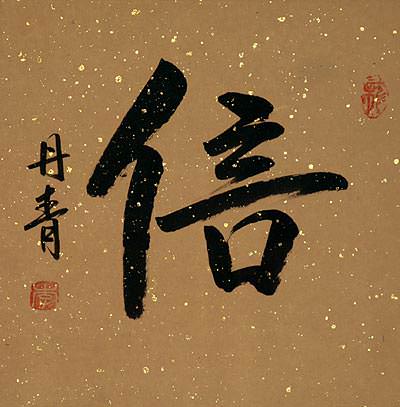 信
丹青